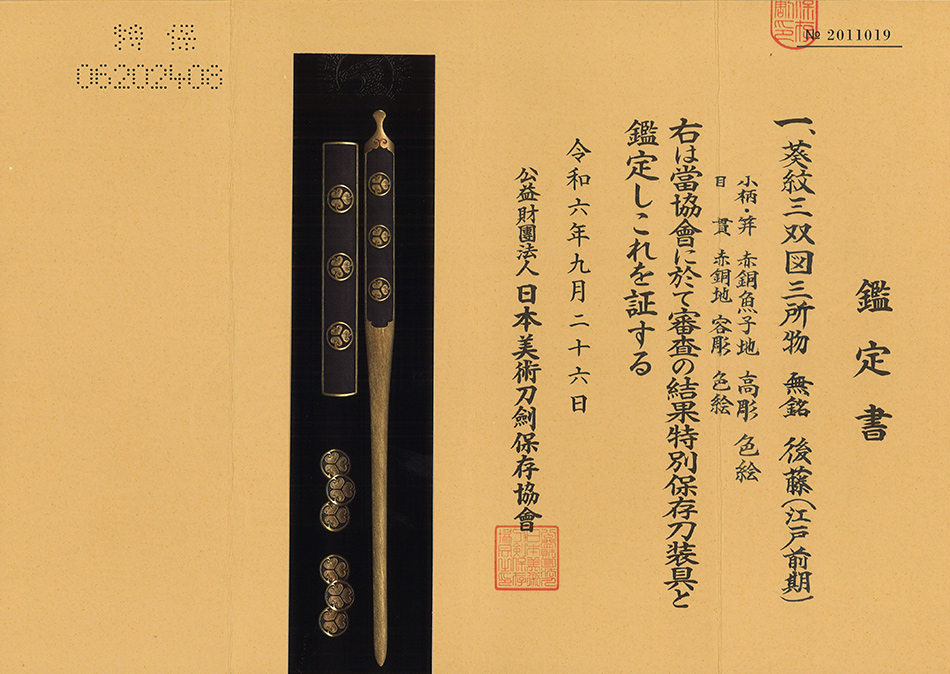 特保
06202408
№ 2011019
鑑定書
一、葵紋三双図三所物 無銘 後藤(江戸前期)
小柄・笄 赤銅魚子地 高彫 色絵
目貫 赤銅地 容彫 色絵
右は當協會に於て審査の結果特別保存刀装具と
鑑定しこれを証する
令和六年九月二十六日
公益財團法人 日本美術刀劍保存協會